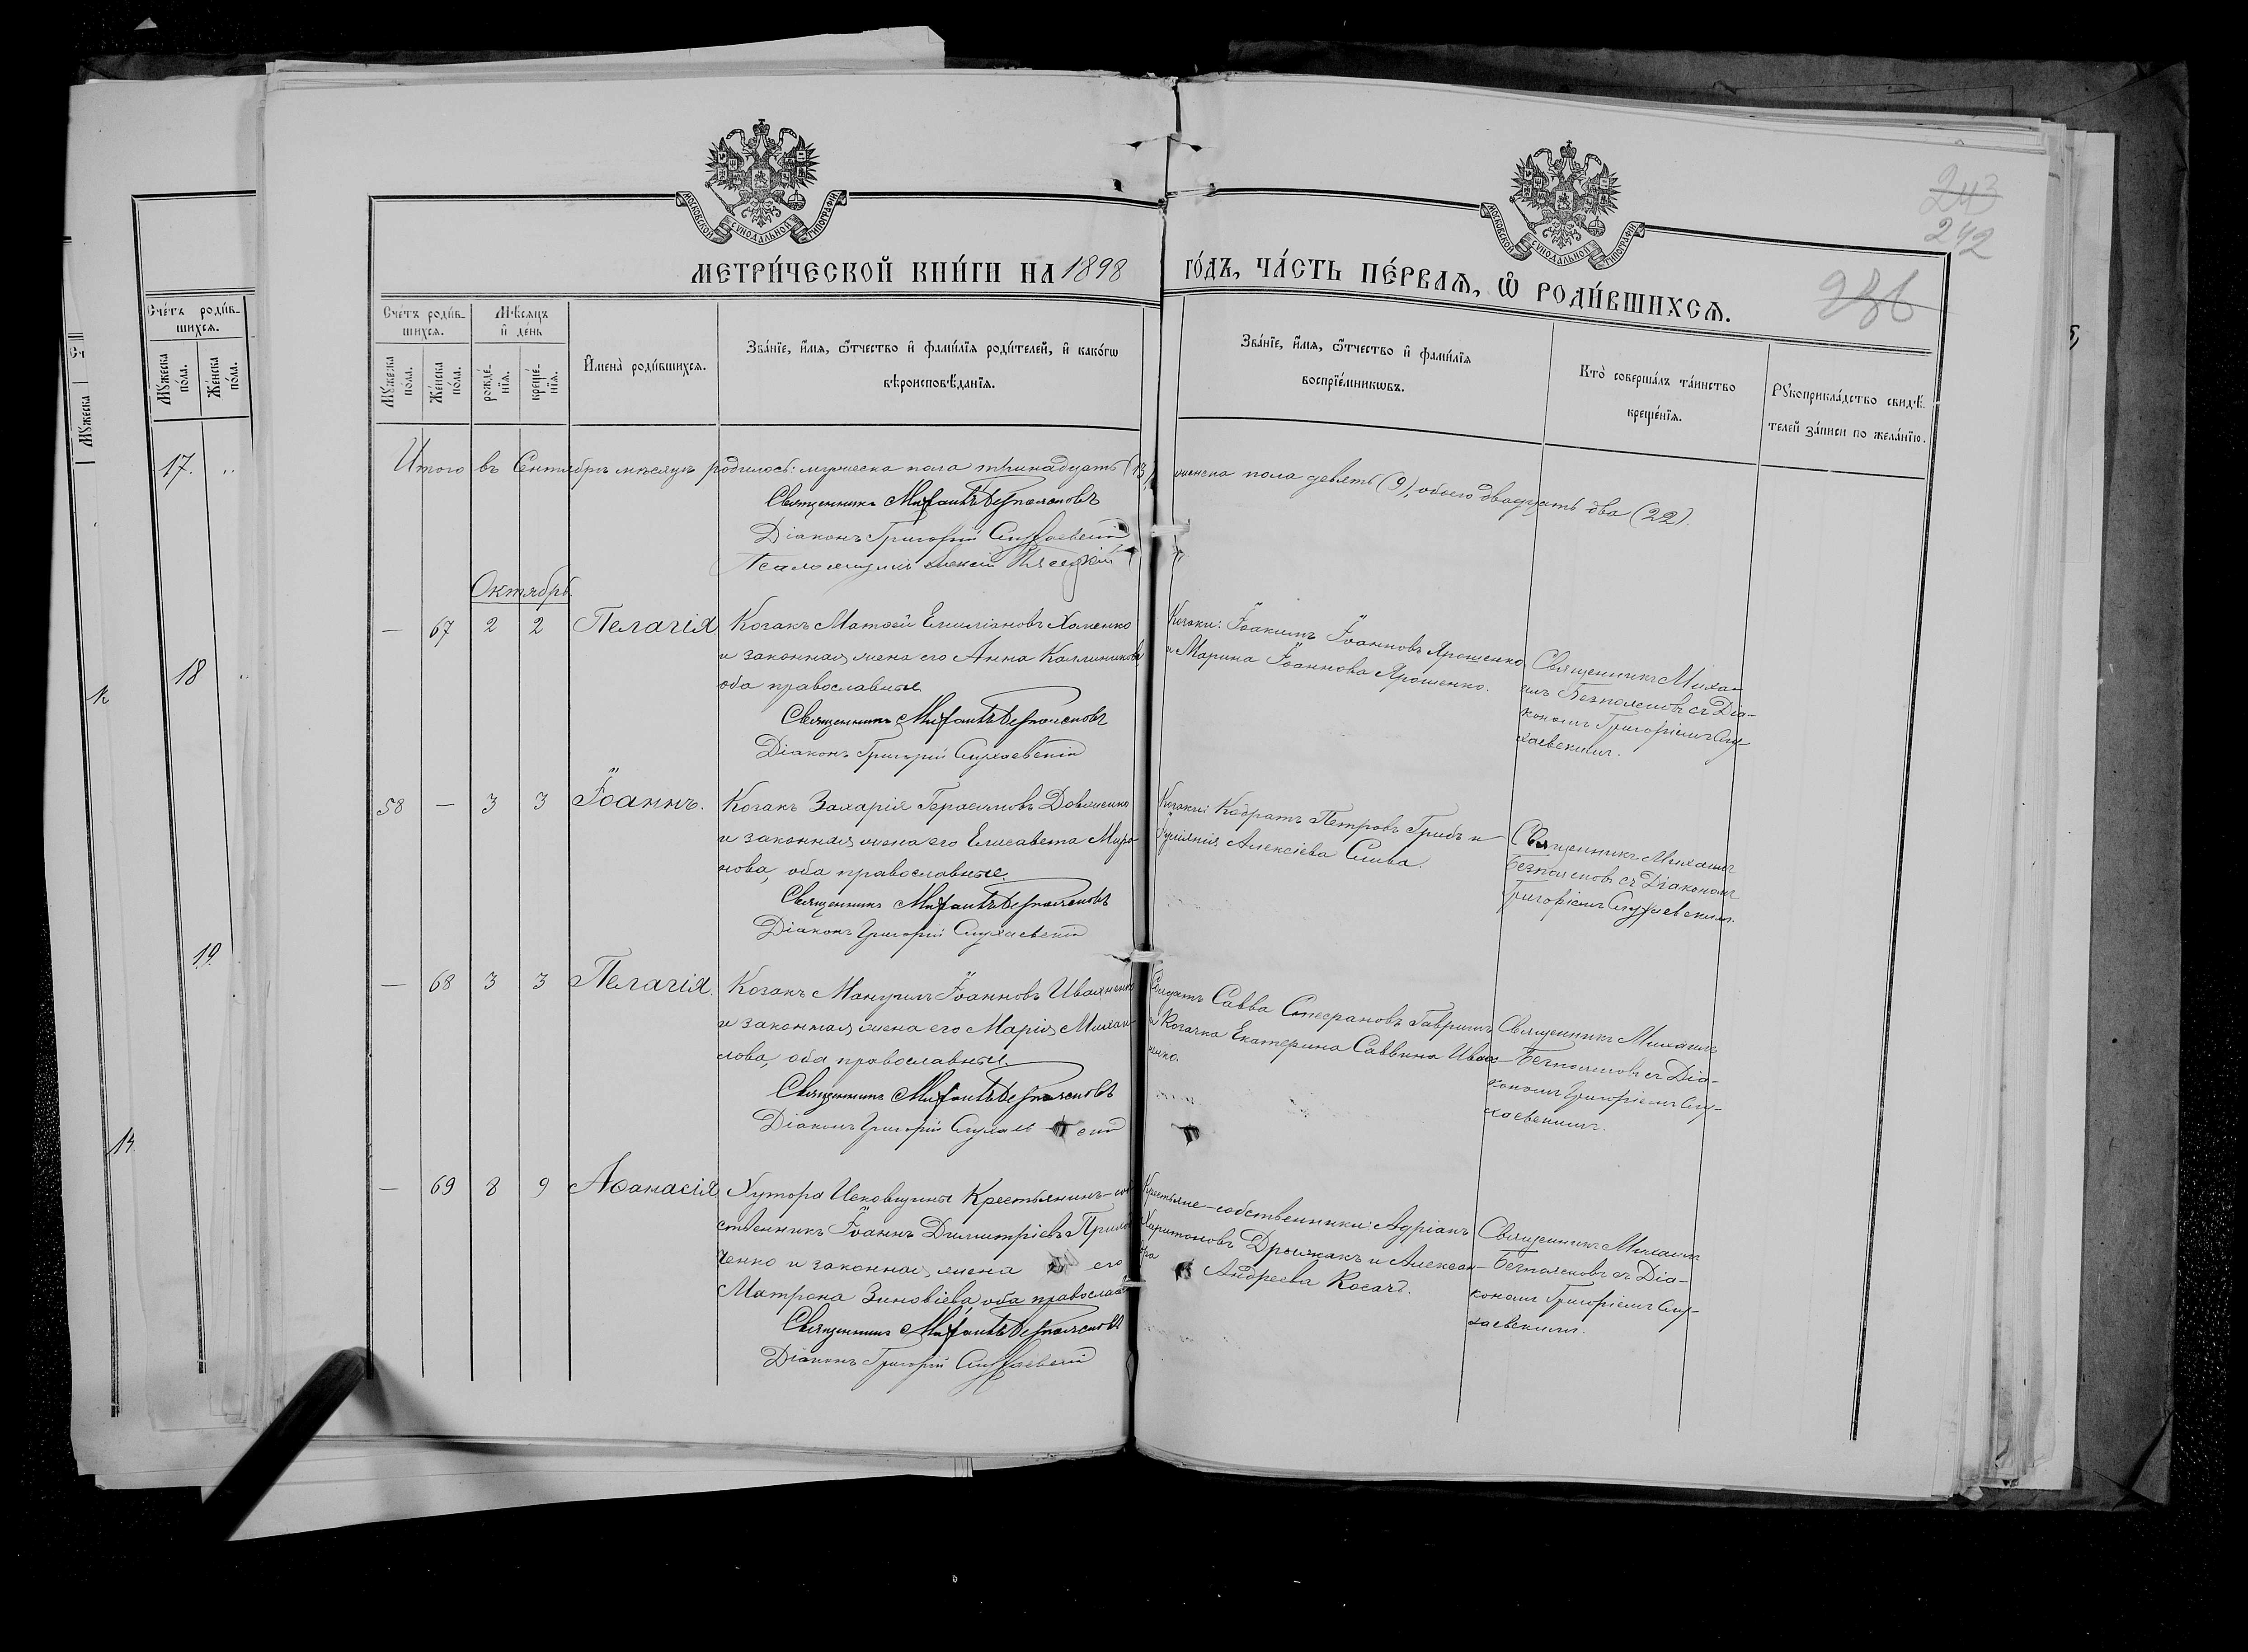 МОСКОВСКОЙ СѴНОДАЛЬНОЙ ТИПОГРАФІИ
МОСКОВСКОЙ СѴНОДАЛЬНОЙ ТИПОГРАФІИ
243
242
236
МЕТРИ́ЧЕСКОЙ КНИ́ГИ НА 1898
ГО́ДЪ, ЧА́СТЬ ПЕ́РВАѦ, Ѡ҆ РОДИ́ВШИХСѦ.
Сче́тъ роди́в-
шихсѧ.
Мꙋ́жеска
по́ла.
Же́нска
по́ла.
17.
18
19.
14.
Сче́тъ роди́в-
шихсѧ.
Мѣ́сѧцъ
и҆ де́нь
Мꙋ́жеска
пола.
Же́нска
по́ла.
рожде́-
нїѧ.
креще́-
нїѧ.
И҆мена̀ роди́вшихсѧ.
Зва́нїе, и҆́мѧ, ѻ҆́тчество и҆ фами́лїѧ роди́телей, и҆ како́гѡ
вѣроисповѣ́данїѧ.
Зва́нїе, и҆́мѧ, ѻ҆́тчество и҆ фами́лїѧ
воспрїе́мникѡвъ.
Кто̀ соверша́лъ та́инство
креще́нїѧ.
Рꙋкоприкла́дство свидѣ́-
телей за́писи по жела́нїю.
Итого въ Сентябрѣ мѣсяцѣ родилось: мужеска пола тринадцать (13), женска пола девять (9), обоего двадцать два (22).
Священникъ Михаилъ Безпоясновъ
Діаконъ Григорій
Псаломщикъ
Октябрь.
— 67 2 2 Пелагія
Козакъ Матѳей Емиліановъ Хоменко
и законная жена его Анна Каллиникова
оба православные.
Священникъ Михаилъ Безпоясновъ
Діаконъ Григорій
Козаки: Іоакимъ Іоанновъ Ярошенко
и Марина Іоаннова Ярошенко.
Священникъ Миха-
илъ Безпоясновъ съ Діа-
кономъ Григоріемъ
58 — 3 3 Іоаннъ.
Козакъ Захарія Герасимовъ Довженко
и законная жена его Елисавета Миро-
нова, оба православные.
Священникъ Михаилъ Безпоясновъ
Діаконъ Григорій
Козаки: Кодратъ Петровъ Грибъ и
Алексіева Слива.
Священникъ Михаилъ
Безпоясновъ съ Діакономъ
Григоріемъ
— 68 3 3 Пелагія.
Козакъ Мануилъ Іоанновъ Ивахненко
и законная жена его Марія Михаи-
лова, оба православные.
Священникъ Михаилъ Безпоясновъ
Діаконъ Григорій
Солдатъ Савва Стефановъ Гавришъ
и Козачка Екатерина Саввина Ивах-
ненко.
Священникъ Михаилъ
Безпоясновъ съ Діа-
кономъ Григоріемъ
— 69 8 9 Аѳанасія
Хутора Исковщины Крестьянинъ-соб-
ственникъ Іоаннъ Димитріевъ
и законная жена его
Матрона Зиновіева, оба православные
Священникъ Михаилъ Безпоясновъ
Діаконъ Григорій
Крестьяне-собственники: Адріанъ
Харитоновъ Дрыжакъ и Алексан-
дра Андреева Косачъ.
Священникъ Михаилъ
Безпоясновъ съ Діа-
кономъ Григоріемъ